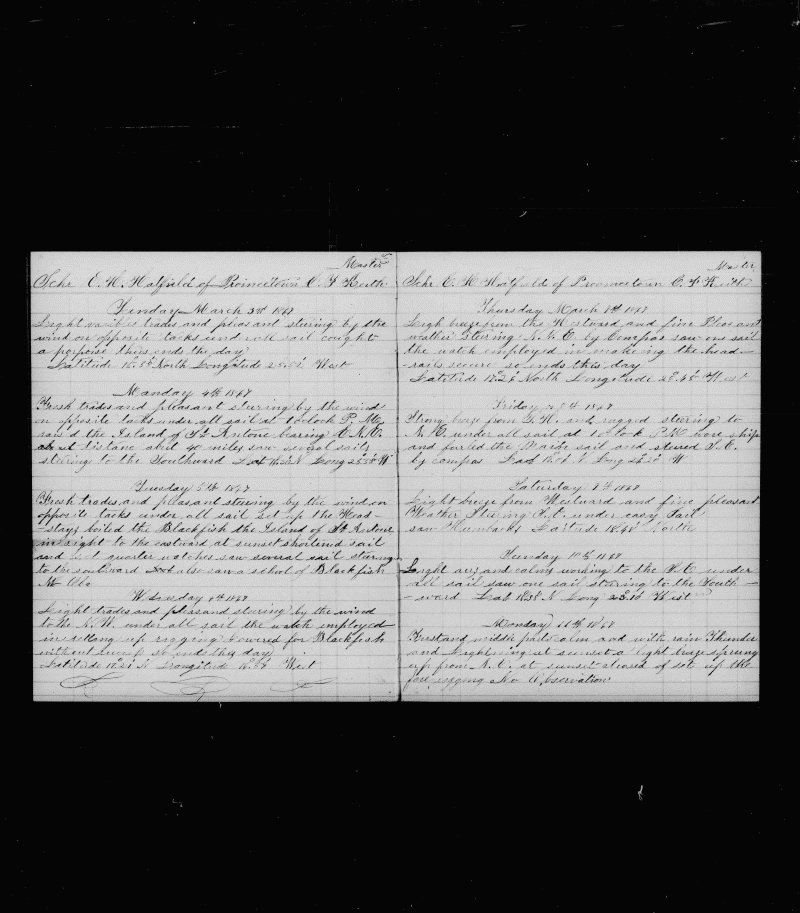 Master
Schr E. H. Hatfield of Provincetown C. F. Keith
Sunday March 3rd 1867
Light varibles trades and pleasant stering by the
wind on opposite tacks under all sail cought
a porpoise thus ends the day
Latitude North Longitude West
Monday 4th 1867
Fresh trades and pleasant steering by the wind
on opposite tacks under all sail at 1 oclock P. M.
rais'd the Island of St Antone bearing E N. E.
distance abut 40 miles saw several sails
steering to the Southward Lat N Long W
Tuesday 5th 1867
Fresh trades and pleasant stering by the wind on
opposite tacks under all sail set up the Head-
-stays boiled the Blackfish the Island of St Antone
in sight to the eastward at sunset shortend sail
and set quarter watches saw several sail steering
to the southward also saw a school of Blackfish
No Obs
Wensday 6th 1867
Light trades and pleasand stering by the wind
to the N. W. under all sail the watch employed
in setting up rigging Lowered for Blackfish
without success so ends this day
Latitude Longitude West
Master
Schr E. H. Hatfield of Provincetown C. F. Keith
Thursday March 7th 1867
Ligh breeze from the Westward and fine Pleasant
weather Stering N. N. E. by Compas saw one sail
the watch employed in makeing the head-
-rails secure so ends this day
Latitude North Longitude West
Friday 1867
Strong breze from S. W. and rugged steering to
N. E. under all sail at 1 oclock P. M. wore ship
and furled the Main sail and steared S. E.
by compas Lat N Long W
Saturday 1867
Light breeze from Westward and fine pleasant
Weather Stering S. E. under easy Sail
saw Humbacks Laitude 18.48 North
Sunday 10th 1867
Light airs and calms working to the S. E. under
all sail saw one sail stering to the South-
-ward Lat 18.38 N Long West
Monday 11th 1867
First and middle parts calm and with rain Thunder
and Lightning at sunset a light breze sprung
up from N. E. at sunset set up the
fore rigging No Observation